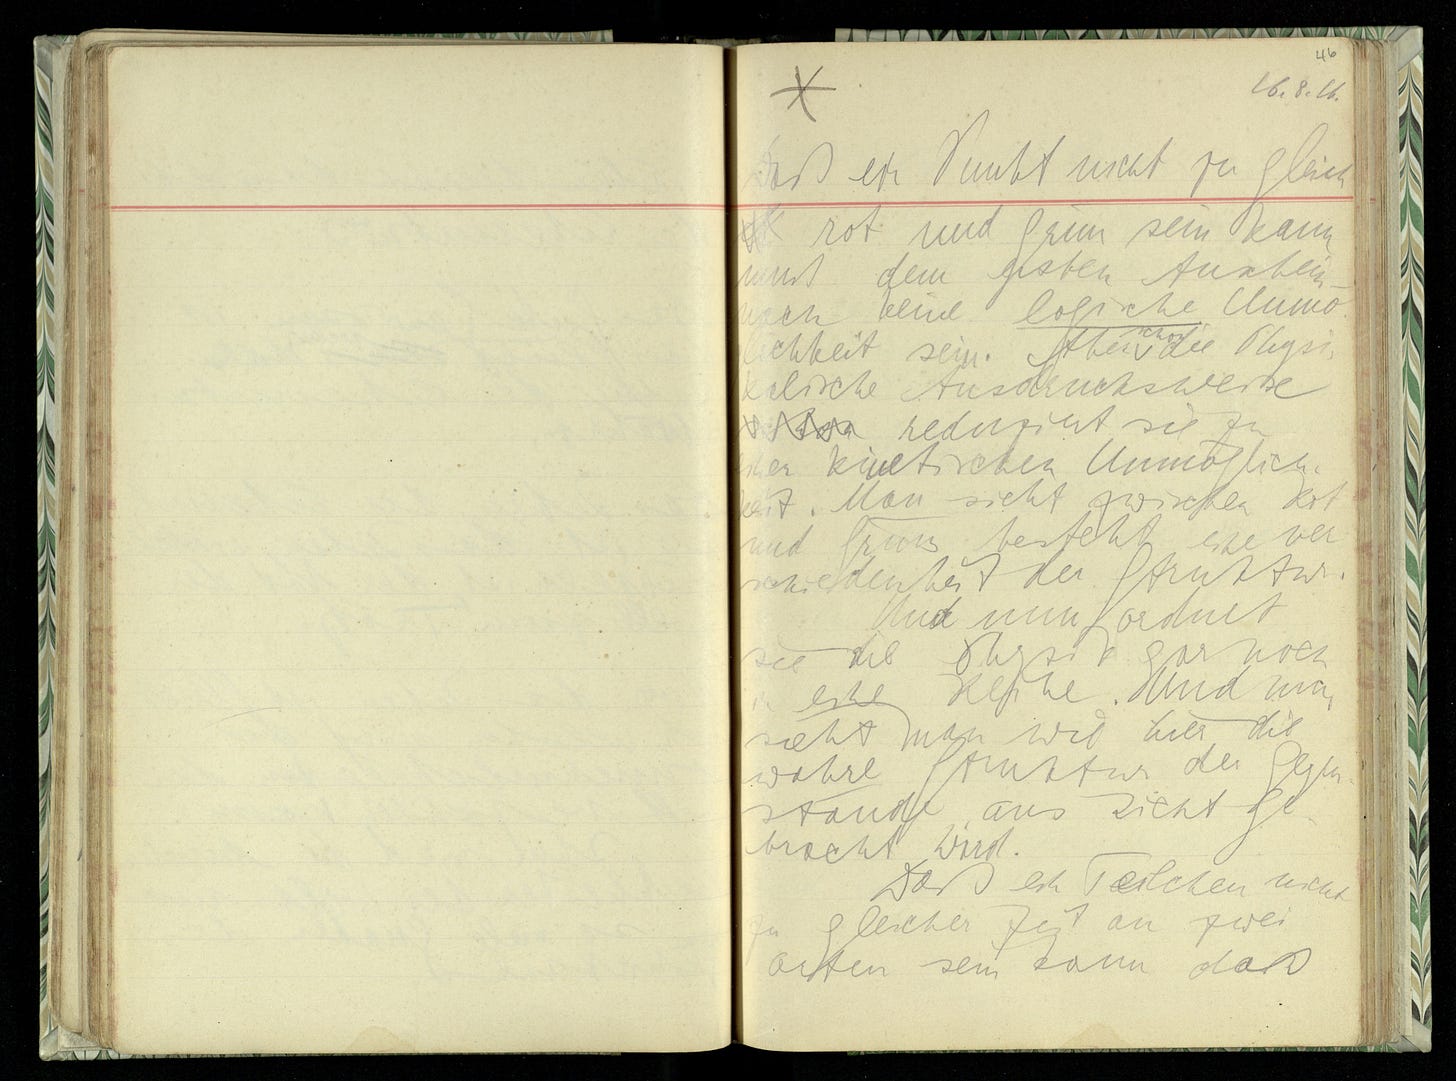 46
16.8.16.
Daß ein Punkt nicht zu gleich
rot und grün sein kann
muß dem ersten Anschein
nach keine logische Unmö-
lichkeit sein. Aber schon die Physi-
kalische Ausdrucksweise
reduziert sie zu
einer kinetischen Unmöglich-
keit. Man sieht zwischen Rot
und Grün besteht eine ver
schiedenheit der Struktur.
Und nun ordnet
sie die Physik gar noch
in eine Reihe. Und nun
sieht man wie hier die
wahre Struktur der Gegen-
stände ans Licht ge-
bracht wird.
Daß ein Teilchen nicht
zu gleicher Zeit an zwei
Orten sein kann daß